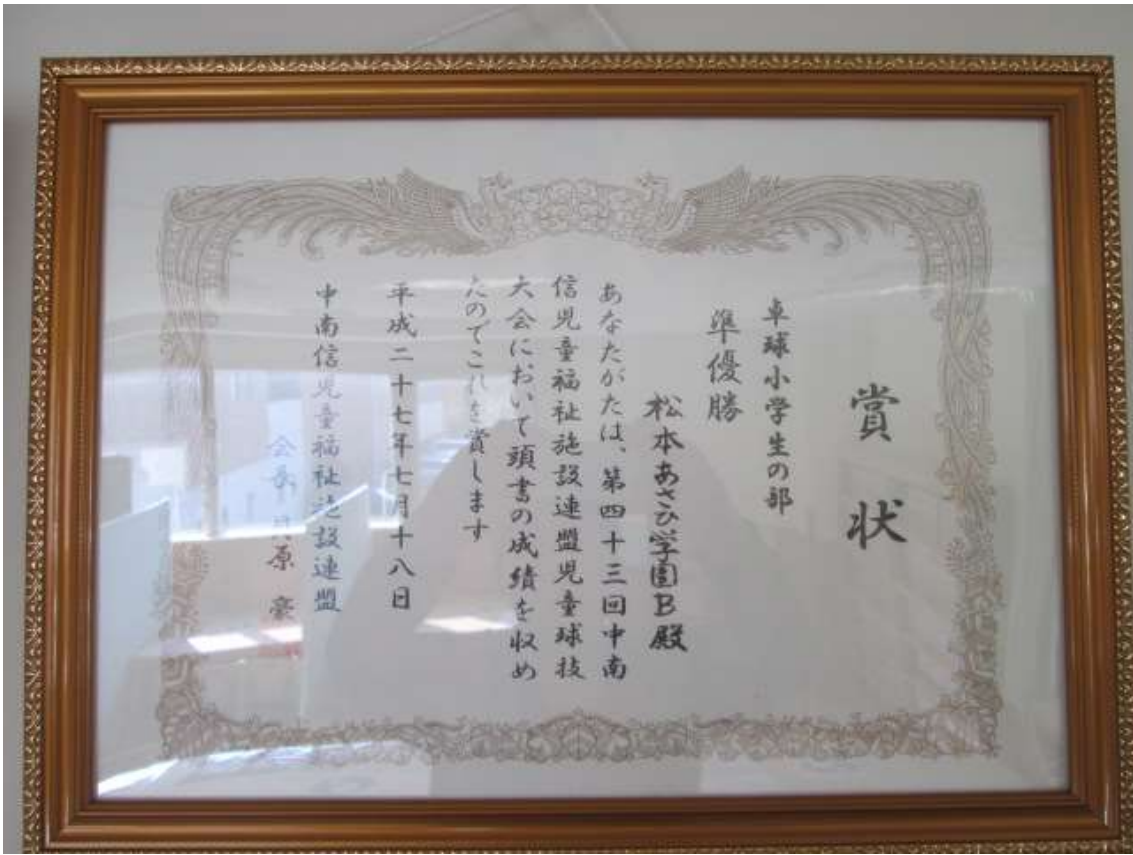 賞状
卓球小学生の部
準優勝
松本あさひ学園B殿
あなたがたは、第四十三回中南
信児童福祉施設連盟児童球技
大会において頭書の成績を収め
たのでこれを賞します
平成二十七年七月十八日
中南信児童福祉施設連盟
会長 原 豪